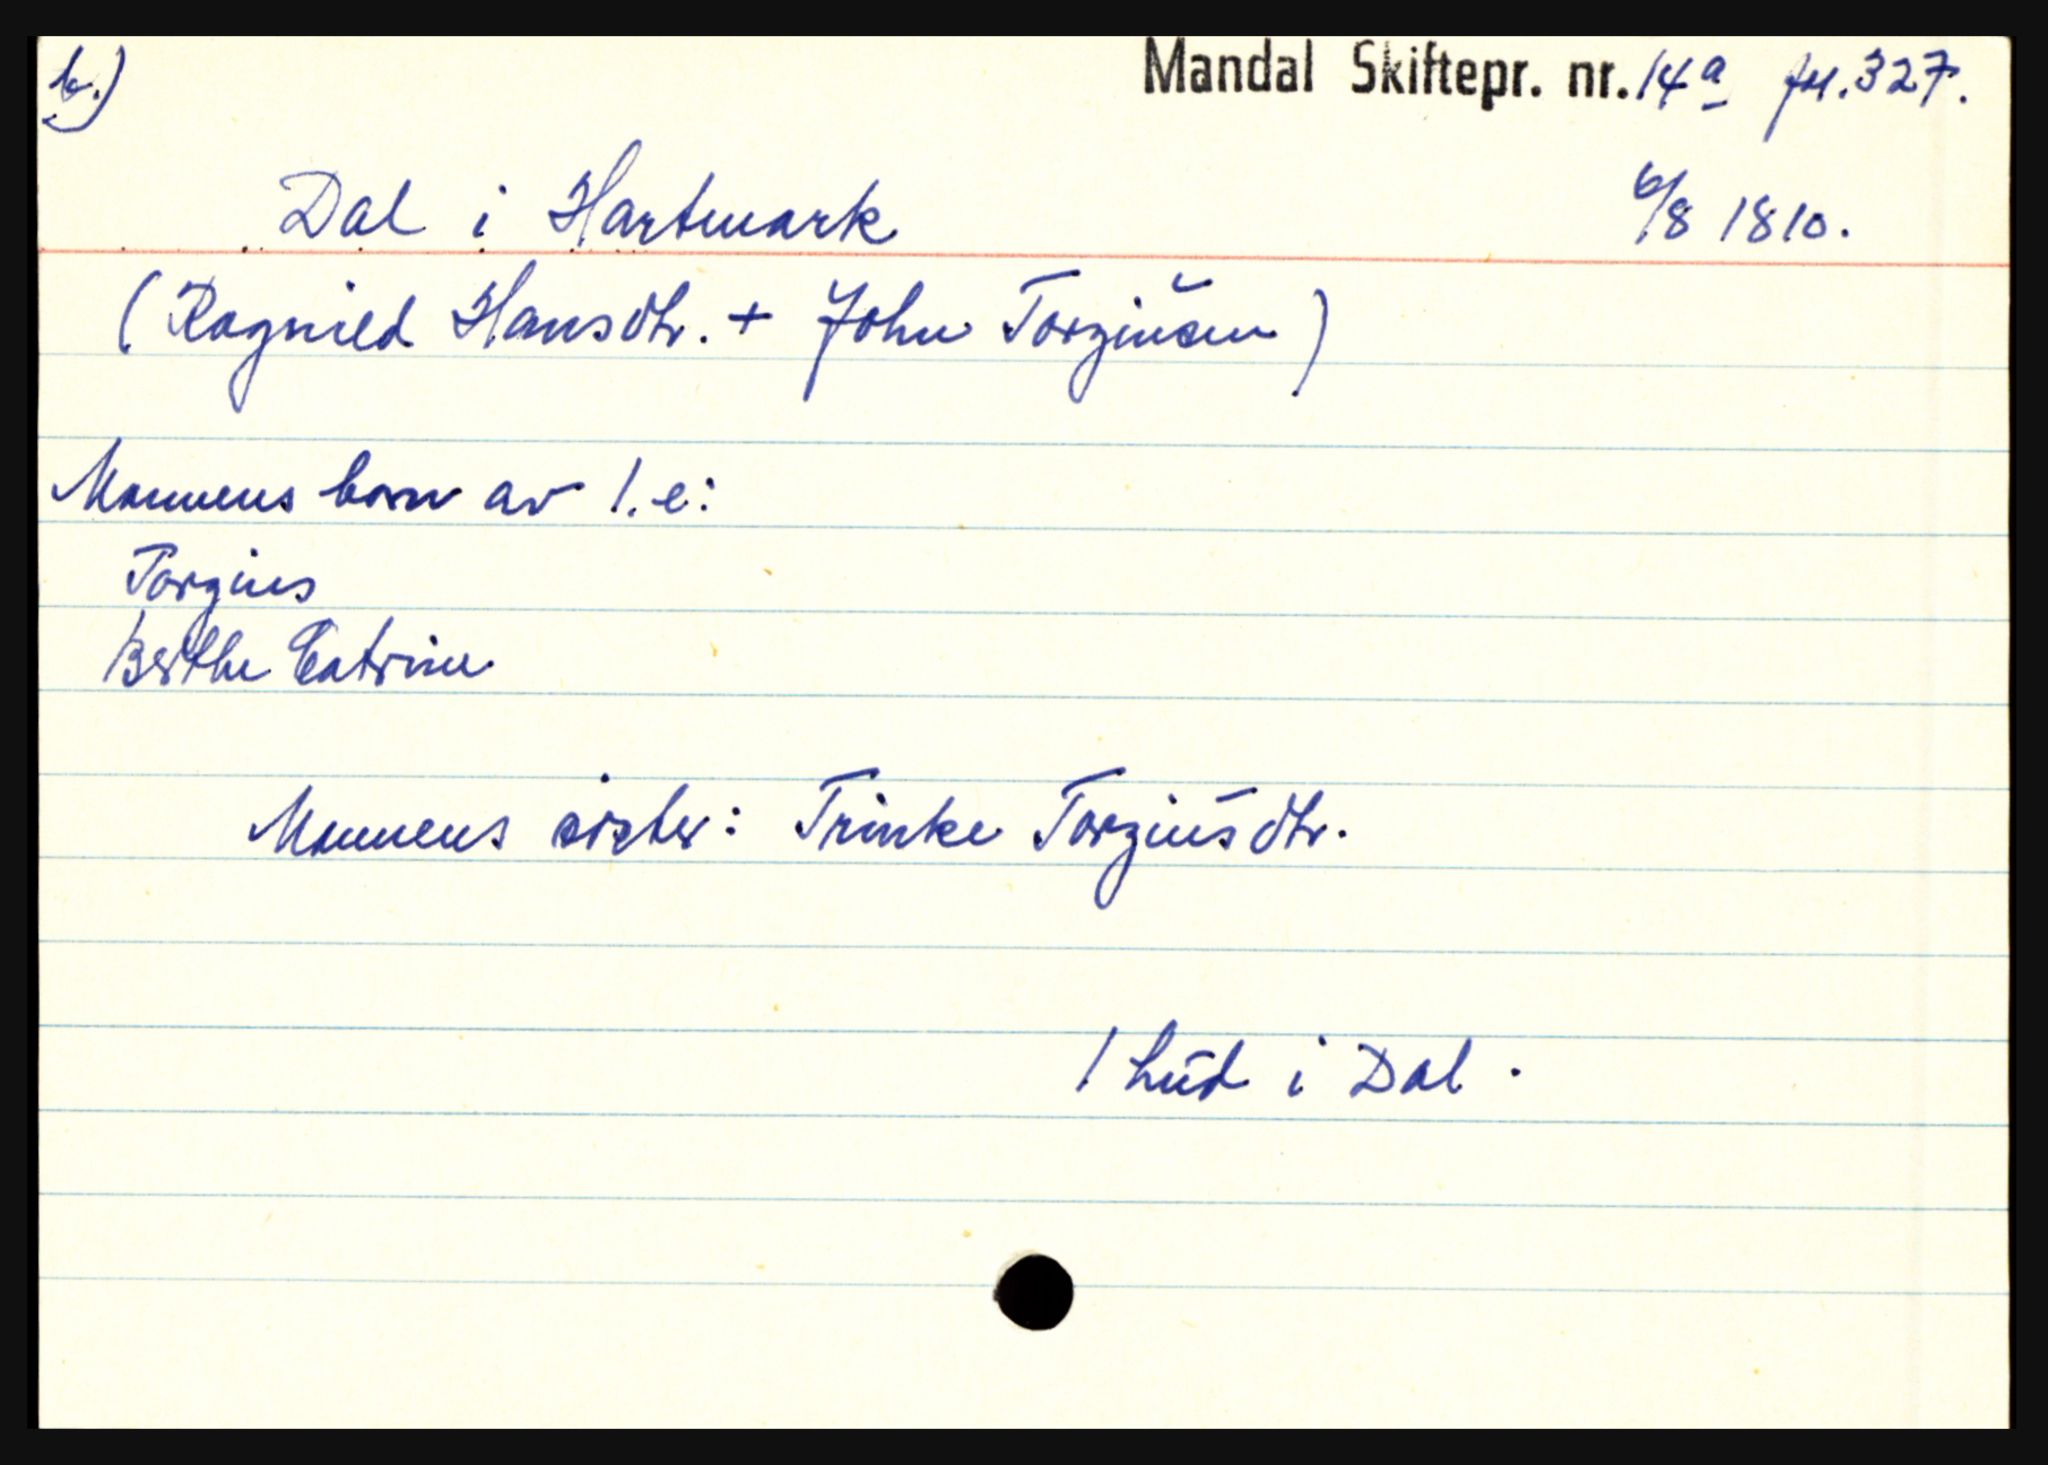 b.) Mandal Skiftepr. nr. 14a fol. 327.
Dal i Hartmark 6/8 1810.
(Ragnild Hansdtr. + John Torgiusen)
Mannens born av 1. e:
Torgius
Berthe Catrine
Mannens sister: Trinke Torgiusdtr.
1 hud i Dal.